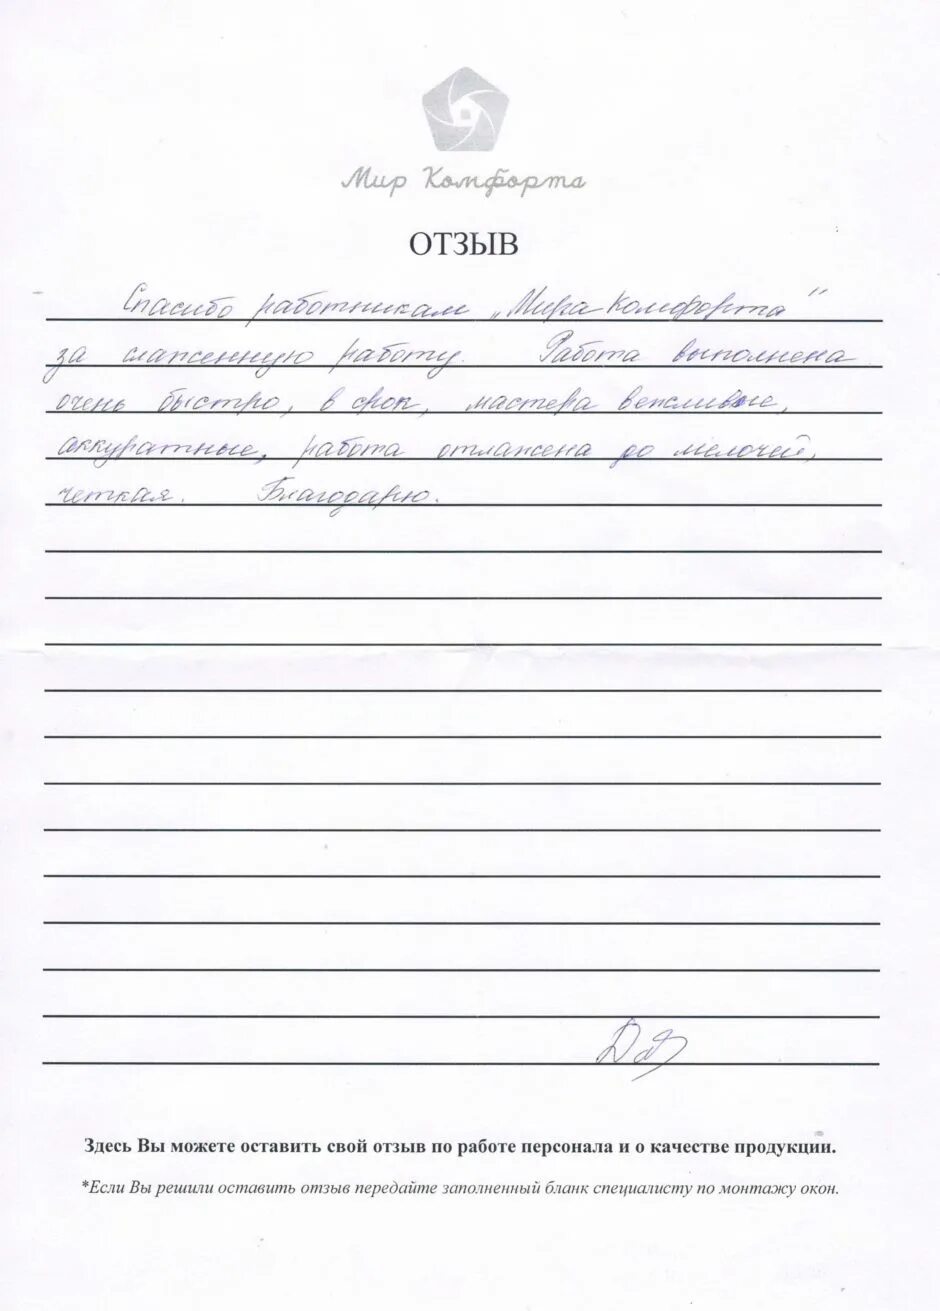 Мир Комфорта
ОТЗЫВ
Спасибо работникам „Мира Комфорта"
за слаженную работу. Работа выполнена
очень быстро, в срок, мастера вежливые,
аккуратные, работа отлажена до мелочей,
четкая. Благодарю.
Здесь Вы можете оставить свой отзыв по работе персонала и о качестве продукции.
*Если Вы решили оставить отзыв передайте заполненный бланк специалисту по монтажу окон.